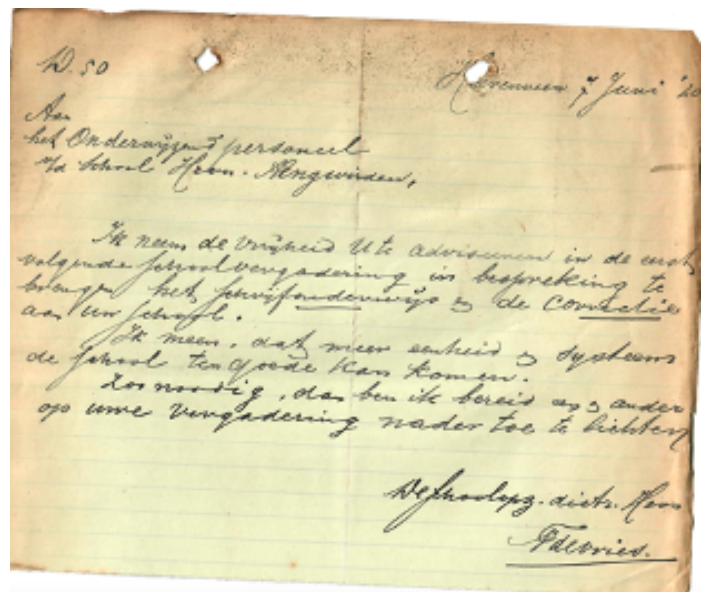 D. 50
Heerenveen 7 Juni '20
Aan
het Onderwijzend personeel
v/d School Heeren. Aengwirden,
Ik neem de vrijheid U te adviseeren in de eerst
volgende schoolvergadering in bespreking te
brengen het schrijfonderwijs en de correctie
aan uw school.
Ik meen, dat meer eenheid en systeem
de school ten goede kan komen.
Zoo noodig, dan ben ik bereid een en ander
op uwe vergadering nader toe te lichten
De schoolopz. distr. Heer
F de Vries.